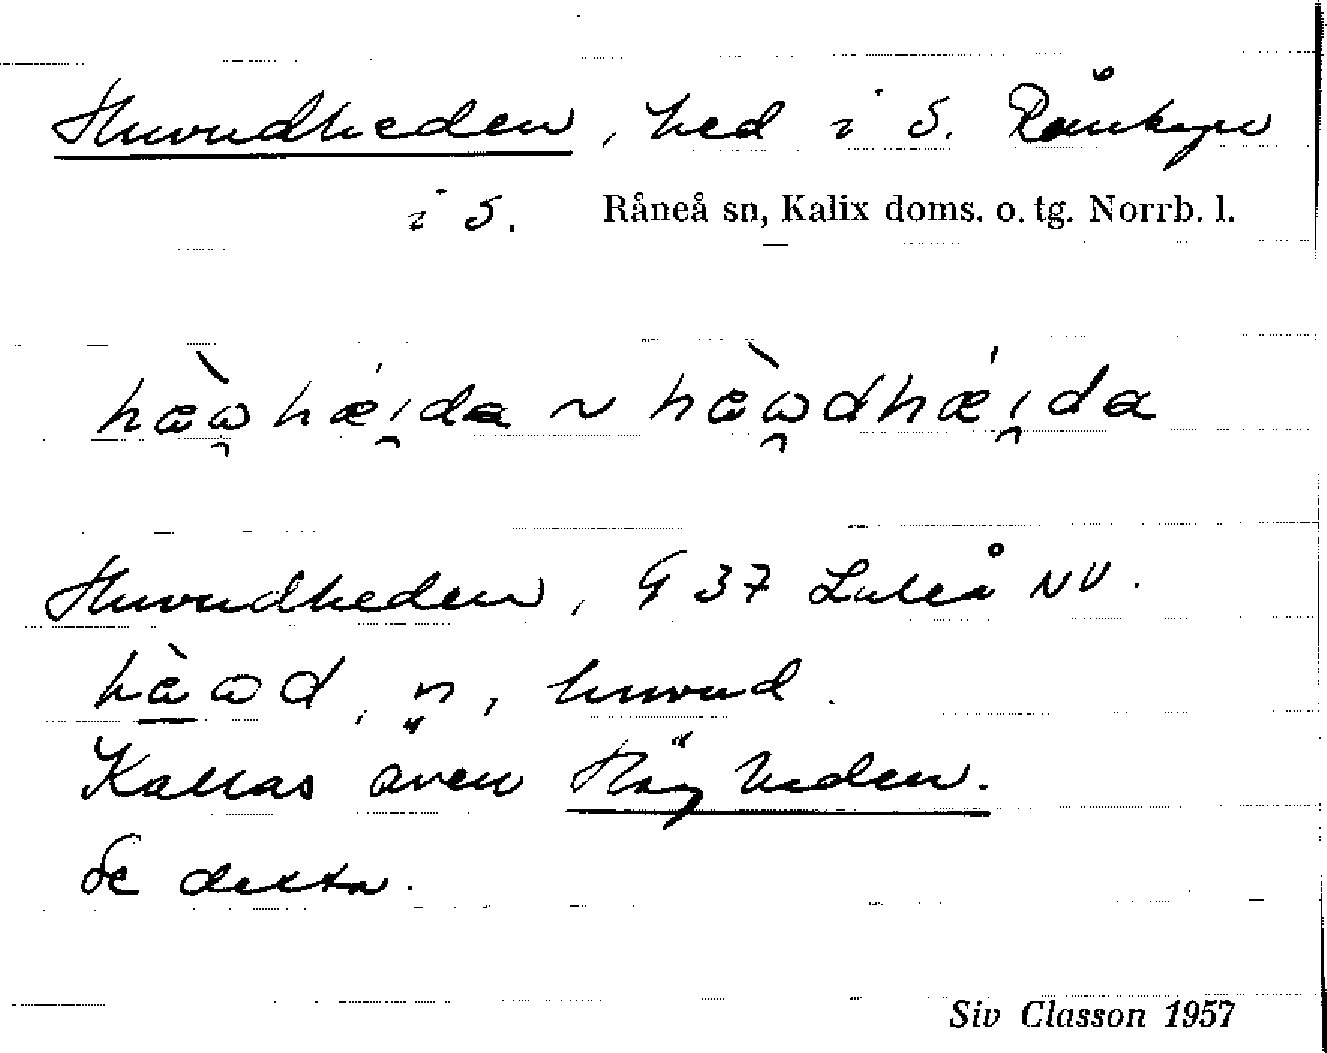 Huvudheden, hed i S. Rånbyn
i S. Råneå sn, Kalix doms. o. tg. Norrb. l.
hæ̀ω̯hæ´i̯da ~ hæ̀ω̯dhæ´i̯da
Huvudheden, G 37 Luleå NV.
hæ̀ωd, n, huvud.
Kallas även Högheden.
Se detta.
Siv Classon 1957